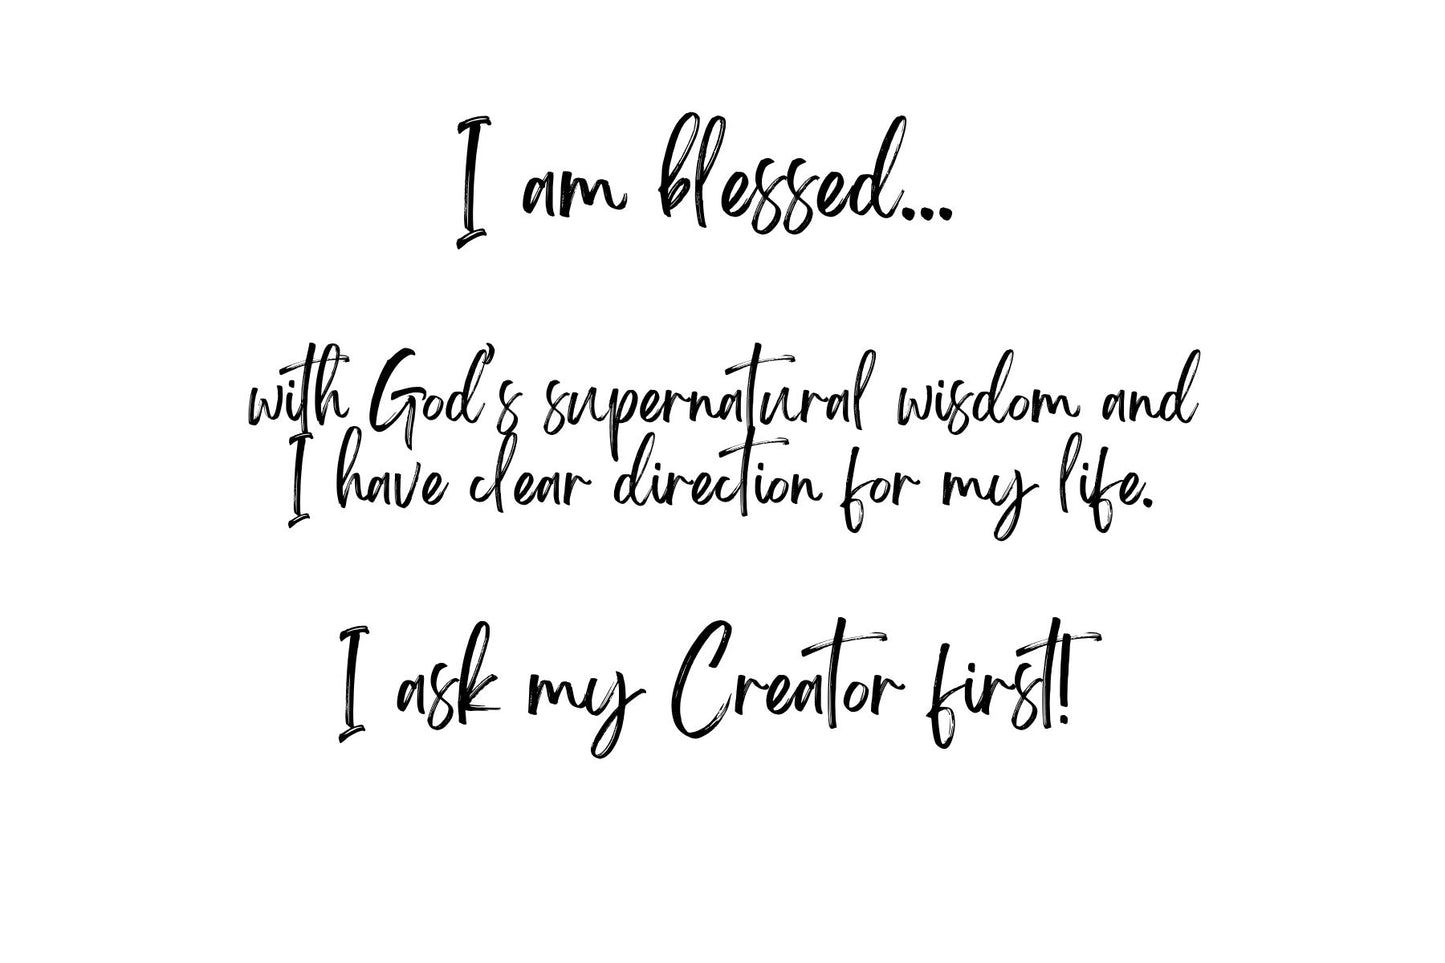 I am blessed...
with God's supernatural wisdom and
I have clear direction for my life.
I ask my Creator first!